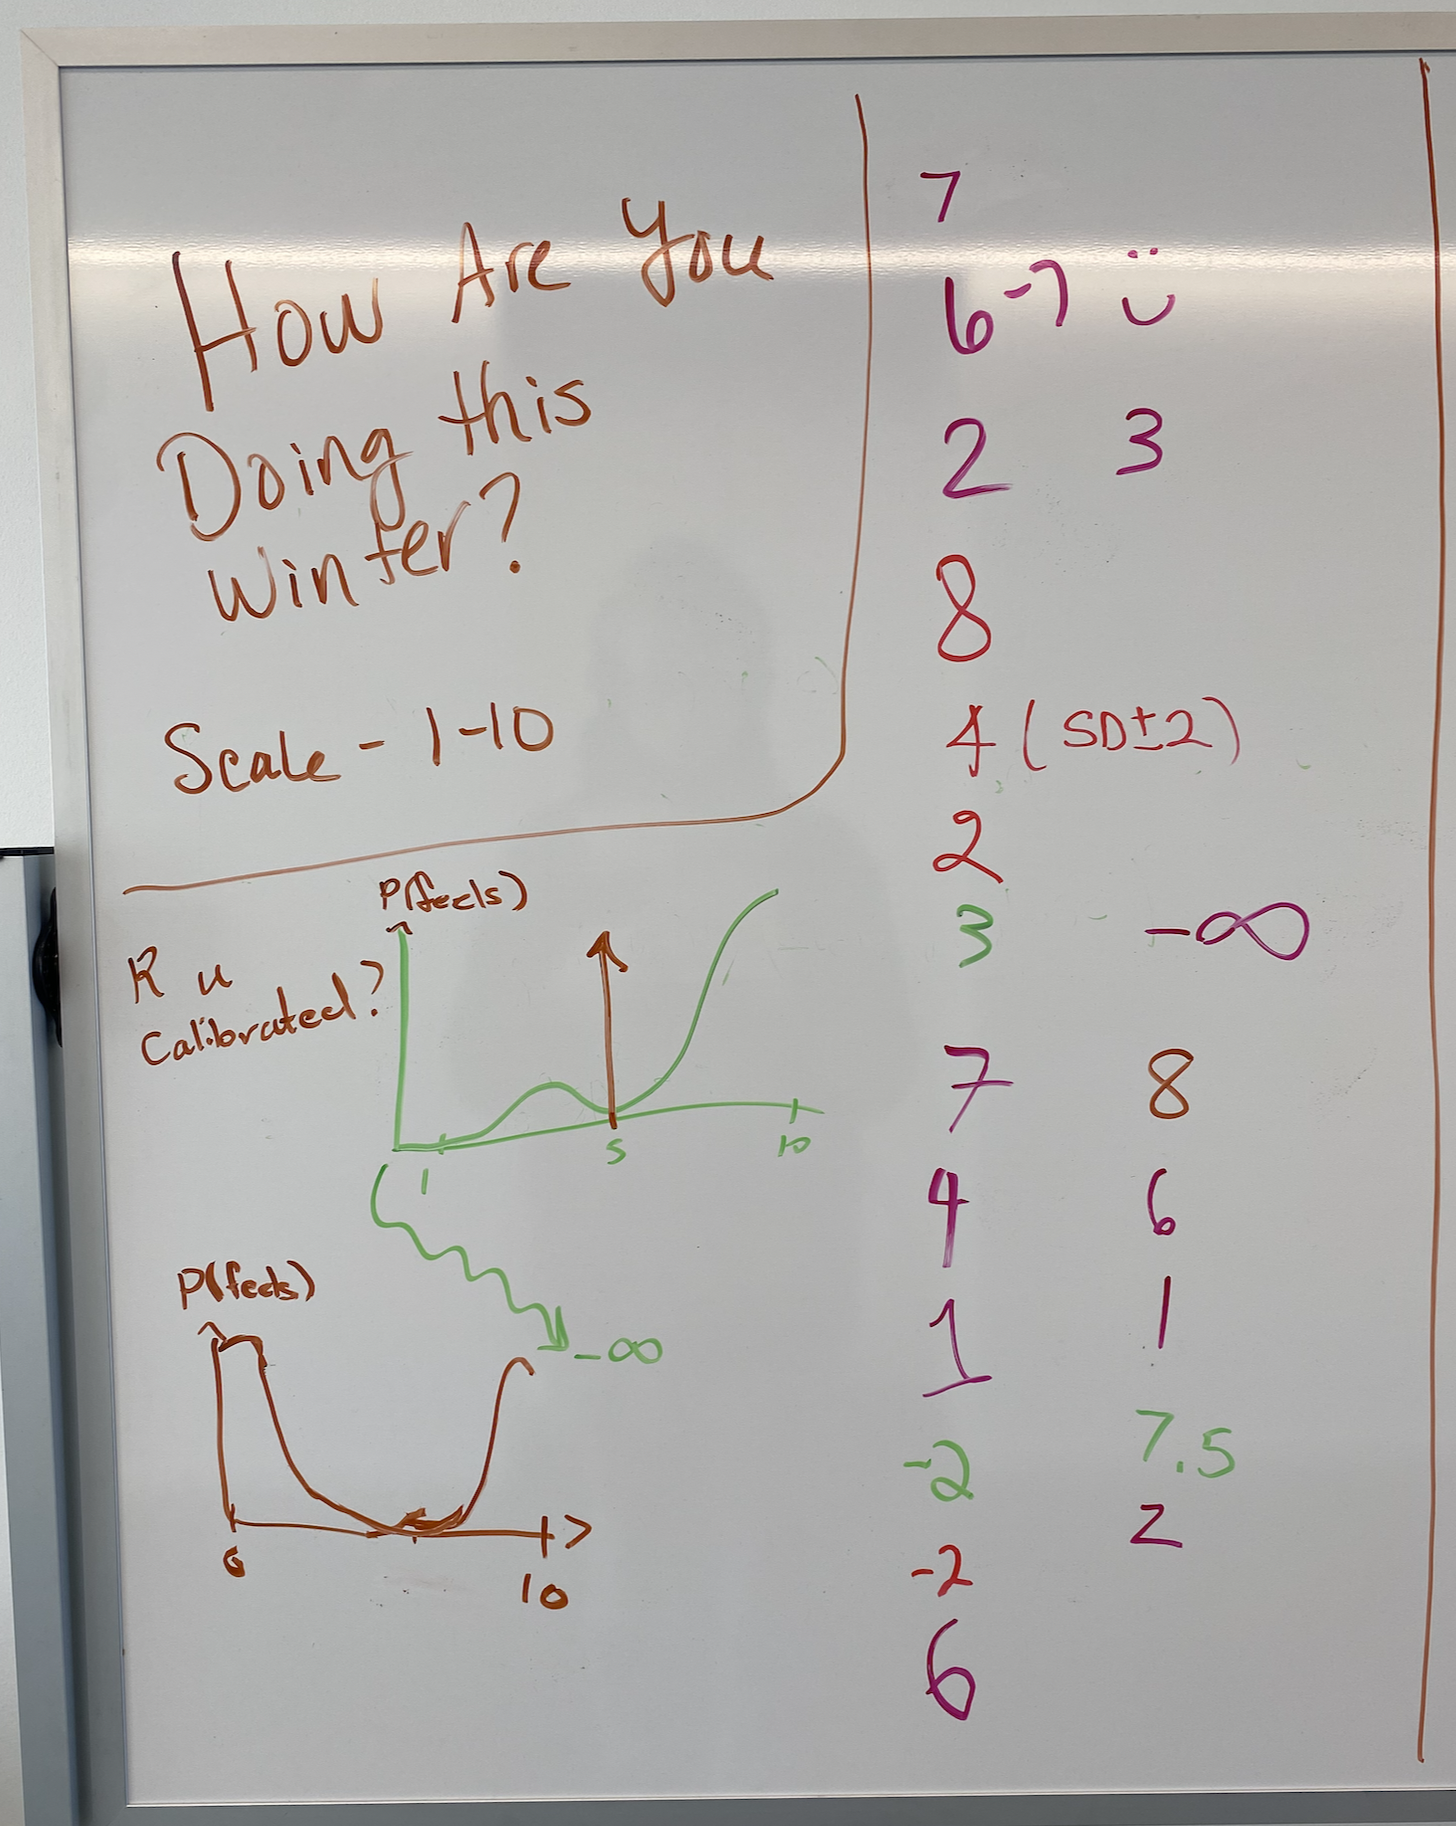 How Are You
Doing this
Winter?
Scale - 1-10
P(feels)
R u
Calibrated?
1 5 10
-∞
P(feels)
0 10
7
6-7 :)
2 3
8
4 (SD±2)
2
3 -∞
7 8
4 6
1 1
-2 7.5
2
-2
6